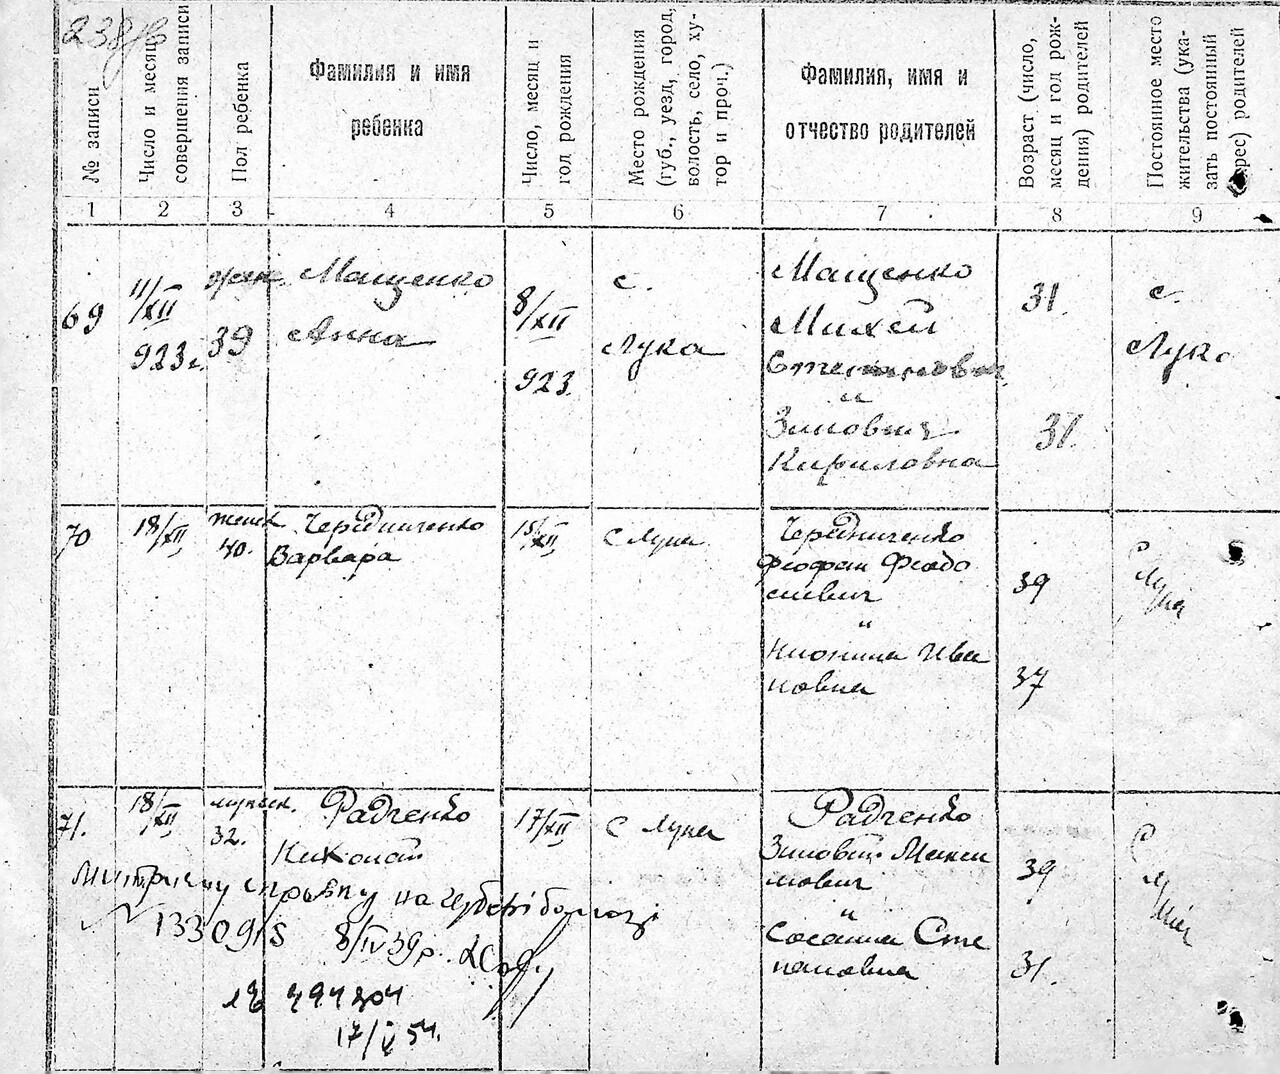 238
№ записи
Число и месяц
совершения записи
Пол ребенка
Фамилия и имя
ребенка
Число, месяц и
год рождения
Место рождения
(губ., уезд, город,
волость, село, ху-
тор и проч.)
Фамилия, имя и
отчество родителей
Возраст (число,
месяц и год рож-
дения) родителей
Постоянное место
жительства (ука-
зать постоянный
адрес) родителей
1 2 3 4 5 6 7 8 9
69
11/XII
923 г.
жен.
39
Мащенко
Анна
8/XII
923
с.
Лука
Мащенко
Михей
Степанович
и
Зиновия
Кириловна
31
31
с.
Лука
70
18/XII
женск
40.
Чередниченко
Варвара
15/XII
с Лука
Чередниченко
Феофан Феодо
сиевич
и
Ива
новна
39
37
с
Лука
71.
18/XII
мужск.
32.
Радченко
Николай
17/XII
с Лука
Радченко
Зиновий Макси
мович
и
Сосанна Сте
пановна
39
31.
с
Лука
Метричну справку на
133091
8/IV 39р.
494304
17/V 54.